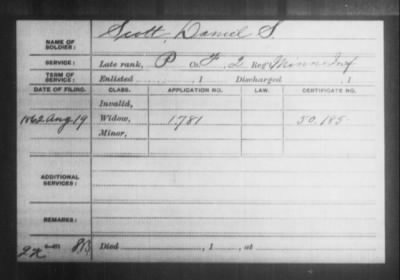 Scott, Daniel S.
NAME OF SOLDIER:
SERVICE: Late rank, P Co. F, 2 Reg't Minn Inf
TERM OF SERVICE: Enlisted , 1 Discharged , 1
DATE OF FILING. CLASS. APPLICATION NO. LAW. CERTIFICATE NO.
Invalid,
1862 Aug 19 Widow, 1,781 50,185
Minor,
ADDITIONAL SERVICES:
REMARKS:
Died , 1 , at